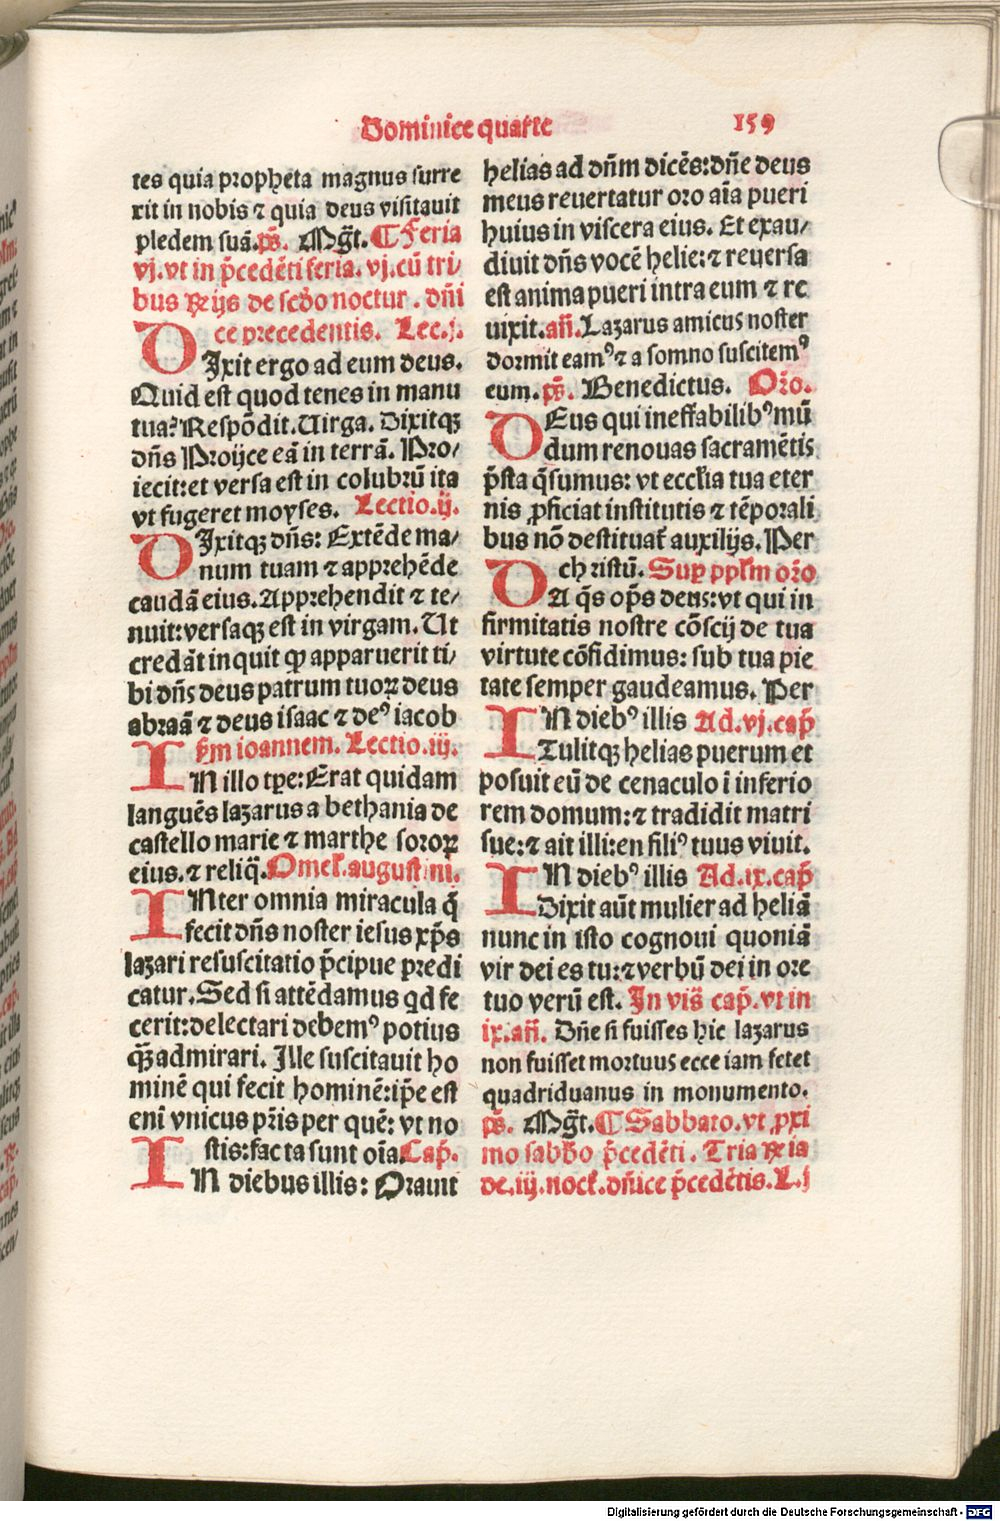 Dominice quarte 159
tes quia propheta magnus surre
xit in nobis ⁊ quia deus visitauit
pledem suā. ps̄. Mg̃t. ¶ Feria
vj. vt in p̄cedēti feria. vj. cū tri/
bus ℞ijs de scd̄o noctur. dn̄i
ce precedentis. Lec. j.
DIxit ergo ad eum deus.
Quid est quod tenes in manu
tua? Respōdit. Uirga. Dixitqꝫ
dn̄s Proijce eā in terrā. Pro/
iecit: et versa est in colubrū ita
vt fugeret moyses. Lectio. ij.
DIxitqꝫ dn̄s: Extēde ma/
num tuam ⁊ apprehēde
caudā eius. Apprehendit ⁊ te/
nuit: versaqꝫ est in virgam. Ut
credāt inquit ꝙ apparuerit ti/
bi dn̄s deus patrum tuoꝝ deus
abraā ⁊ deus isaac ⁊ deꝰ iacob
Sm̄ ioannem. Lectio. iij.
IN illo tꝑe: Erat quidam
languēs lazarus a bethania de
castello marie ⁊ marthe soroꝝ
eius. ⁊ reliq̄. Omel̄. augustini.
INter omnia miracula q̄
fecit dn̄s noster iesus xp̄s
lazari resuscitatio p̄cipue predi
catur. Sed si attēdamus qd fe
cerit: delectari debemꝰ potius
qꝫ̄ admirari. Ille suscitauit ho
minē qui fecit hominē: ip̄e est
enī vnicus pr̄is per quē: vt no
stis: facta sunt oīa Cap̄.
IN diebus illis: Orauit
helias ad dn̄m dicēs: dn̄e deus
meus reuertatur oro aīa pueri
huius in viscera eius. Et exau/
diuit dn̄s vocē helie: ⁊ reuersa
est anima pueri intra eum ⁊ re
uixit. an̄. Lazarus amicus noster
dormit eamꝰ ⁊ a somno suscitemꝰ
eum. ps̄. Benedictus. Or̄o.
DEus qui ineffabilibꝰ mū
dum renouas sacramētis
p̄sta q̄sumus: vt eccl̄ia tua eter
nis ꝓficiat institutis ⁊ tēporali
bus nō destituat̄ auxilijs. Per
christū. Suꝑ ppl̄m or̄o
DA q̄s op̄s deus: vt qui in
firmitatis nostre cōscij de tua
virtute cōfidimus: sub tua pie
tate semper gaudeamus. Per
IN diebꝰ illis Ad. vj. cap̄
Tulitqꝫ helias puerum et
posuit eū de cenaculo ī inferio
rem domum: ⁊ tradidit matri
sue: ⁊ ait illi: en filiꝰ tuus viuit.
IN diebꝰ illis Ad. ix. cap̄
Dixit aūt mulier ad heliā
nunc in isto cognoui quoniā
vir dei es tu: ⁊ verbū dei in ore
tuo verū est. In vis̄ cap̄. vt in
ix. an̄. Dn̄e si fuisses hic lazarus
non fuisset mortuus ecce iam fetet
quadriduanus in monumento.
ps̄. Mg̃t. ¶ Sabbato. vt ꝓxi
mo sabb̄o p̄cedēti. Tria ℞ia
de. iij. noct̄. dn̄ice p̄cedētis. L. j
Digitalisierung gefördert durch die Deutsche Forschungsgemeinschaft - DFG